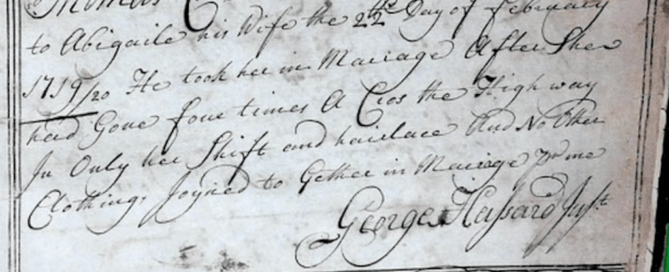 to Abigaile his Wife the 22d Day of February
1719/20 He took her in Mariage After She
had Gone four times A Cros the High way
In Only her Shift and hairlace And No Other
Clothing. Joyned to Gether in Mariage pr me
George Hassard Just